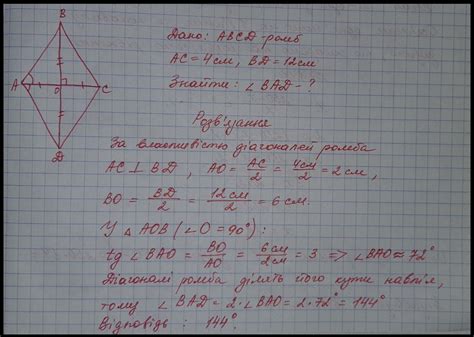 B
A
O
C
D
Дано: ABCD - ромб
AC = 4 см, BD = 12 см
Знайти: ∠BAD - ?
Розв'язання
За властивістю діагоналей ромба
AC ⊥ BD, AO = AC/2 = 4см/2 = 2 см,
BO = BD/2 = 12 см/2 = 6 см.
У △ AOB (∠O = 90°):
tg ∠BAO = BO/AO = 6 см/2 см = 3 => ∠BAO ≈ 72°
Діагоналі ромба ділять його кути навпіл,
тому ∠BAD = 2·∠BAO = 2·72° = 144°
Відповідь: 144°.